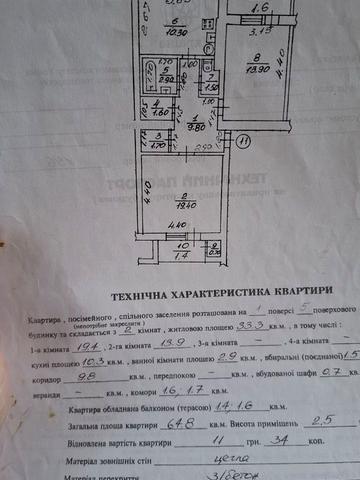 6
10.30
1.6
3.15
8
13.90
4.40
1.70
5
2.90
1.00
7
1.50
4
1.60
1
9.80
3
1.70
2.90
11
4.40
2
19.40
4.40
10
1.4
9
0.70
ТЕХНІЧНА ХАРАКТЕРИСТИКА КВАРТИРИ
Квартира , посімейного , спільного заселення розташована на 1 поверсі 5 поверхового
(непотрібне закреслити)
будинку та складається з 2 кімнат , житловою площею 33.3 кв.м , в тому числі :
1-а кімната 19.4 , 2-га кімната 13.9 , 3-я кімната – , 4-а кімната –
кухні площею 10.3 кв.м , ванної кімнати площею 2.9 кв.м , вбиральні (поєднаної) 1.5
коридор 9.8 кв.м , передпокою – кв.м , вбудованої шафи 0.7 кв.
веранди – кв.м , комори 1.6; 1.7 кв.м.
Квартира обладнана балконом (терасою) 1.4; 1.6 кв.м.
Загальна площа квартири 64.8 кв.м. Висота приміщень 2.5
Відновлена вартість квартири 11 грн. 34 коп.
Матеріал зовнішніх стін цегла
Матеріал перекриття з/бетон